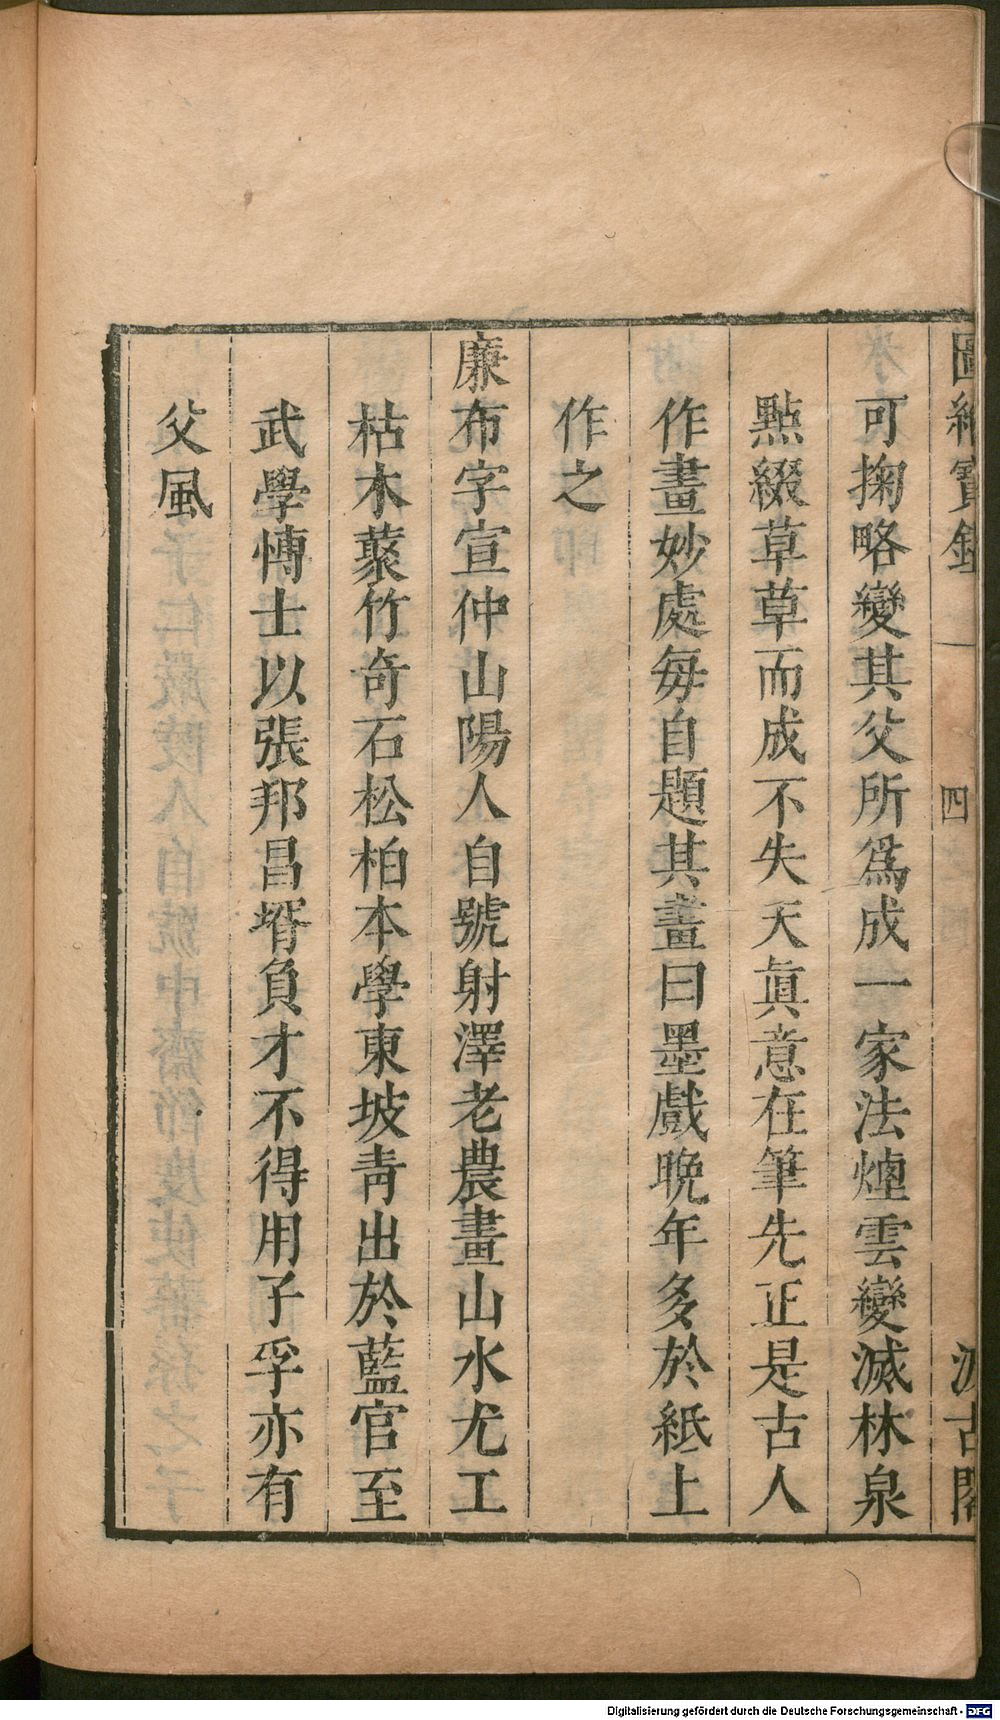 圖繪寶鑑 四 汲古閣
可掬略變其父所爲成一家法煙雲變滅林泉
點綴草草而成不失天眞意在筆先正是古人
作畫妙處每自題其畫曰墨戲晚年多於紙上
作之
廉布字宣仲山陽人自號射澤老農畫山水尤工
枯木䕺竹奇石松柏本學東坡靑出於藍官至
武學愽士以張邦昌壻負才不得用子孚亦有
父風
Digitalisierung gefördert durch die Deutsche Forschungsgemeinschaft - DFG